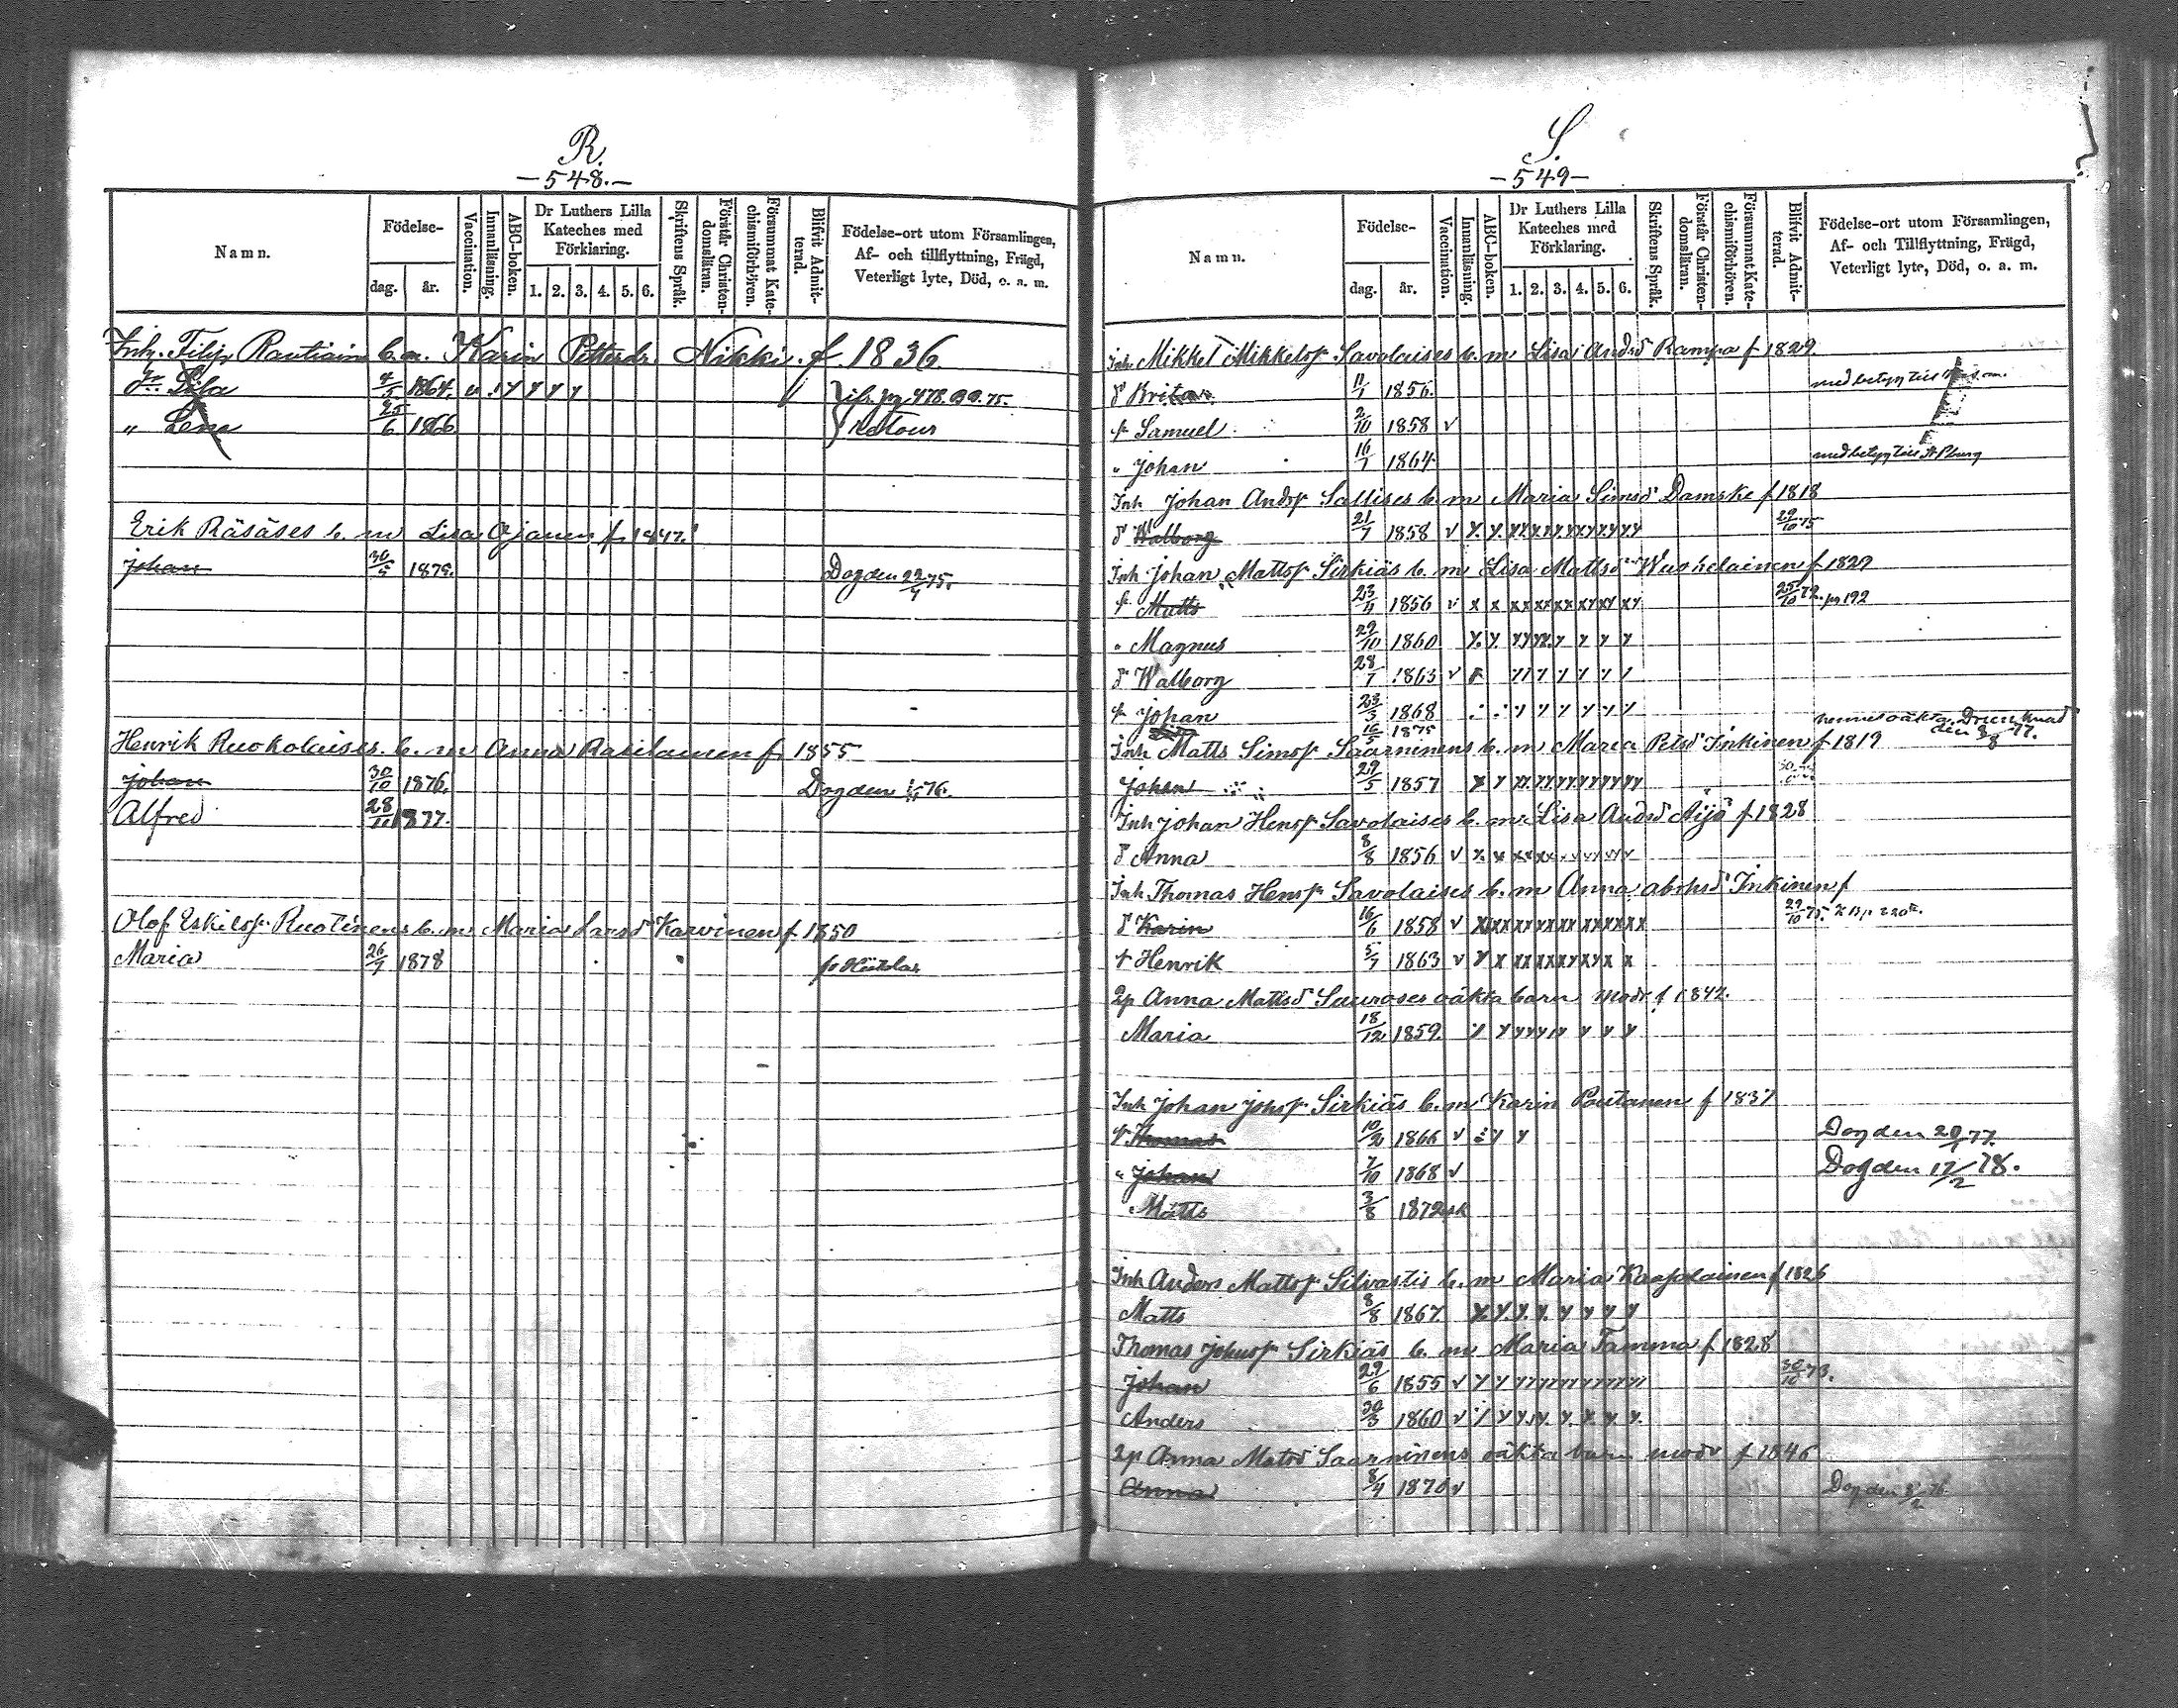 R.
— 548. —
Namn.
Födelse-
dag.
år.
Vaccination.
Innanläsning.
ABC-boken.
Dr Luthers Lilla
Kateches med
Förklaring.
1. 2. 3. 4. 5. 6.
Skriftens Språk.
Förstår Christen-
domsläran.
Försummat Kate-
chismiförhören.
Blifvit Admit-
terad.
Födelse-ort utom Församlingen,
Af- och tillflyttning, Frägd,
Veterligt lyte, Död, o. a. m.
Inh. Filip Rautiain b. m. Karin Pettersdr. Nikki. f. 1836.
Lisa 4/5 1864.
" Lena 25/6 1866 Retour
Erik Räsäses b. m Lisa Ojanen f. 1847.
Johan 30/5 1875. Dog den 22/7 75.
Henrik Ruokolaises. b. m Anna Rasilainen f. 1855
Johan 30/10 1876. Dog den 76.
Alfred 28/11 1877.
Olof Eskilsp. Ruotinens b. m Maria Larsd Karvinen f. 1850
Maria 26/9 1878
S.
— 549 —
Namn.
Födelse-
dag.
år.
Vaccination.
Innanläsning.
ABC-boken.
Dr Luthers Lilla
Kateches med
Förklaring.
1. 2. 3. 4. 5. 6.
Skriftens Språk.
Förstår Christen-
domsläran.
Försummat Kate-
chismiförhören.
Blifvit Admit-
terad.
Födelse-ort utom Församlingen,
Af- och Tillflyttning, Frägd,
Veterligt lyte, Död, o. a. m.
Inh. Mikkel Mikkelsp Savolaises b. m Lisa Andsd Rampa f 1829
d Brita 11/1 1856. med betyg till
p Samuel 2/10 1858 v
" Johan 16/7 1864 med betyg till St Pburg
Inh Johan Andsp Sallises b. m Maria Simsd Damske f 1818
d Walborg 21/7 1858 v 29/10 75
Inh Johan Mattsp Sirkiäs b. m Lisa Mattsd f 1829
p Matts 23/4 1856 v 25/10 72. pg 192
" Magnus 29/10 1860
d Walborg 28/7 1863 v
p Johan 23/3 1868
16/5 1875
Inh Matts Simsp Saarninens b. m Maria Petsd Inkinen f 1819
Johan 29/5 1857
Inh Johan Hensp Savolaises b. m Lisa Andsd Äijö f 1828
d Anna 8/8 1856 v
Inh Thomas Hensp Savolaises b. m Anna abrhsd Inkinen f
d Karin 16/6 1858 v 29/10 75.
p Henrik 5/7 1863 v
2p Anna Mattsd Sauroses oäkta barn modr f 1842.
Maria 18/12 1859.
Inh Johan Johsp Sirkiäs b. m Karin Poutanen f 1837
p Thomas 10/2 1866 v Dog den 20/1 77.
" Johan 7/10 1868 v Dog den 17/2 78.
Matts 3/8 1872
Inh Anders Mattsp Silvastis b. m Maria Kaapolainen f 1826
Matts 8/8 1867
Thomas Johnsp Sirkiäs b. m Maria Tamma f 1828
Johan 29/6 1855 v 30/10 73.
Anders 30/3 1860 v
2p Anna Matsd Saarninens oäkta barn modr f 1846
Anna 8/4 1870 v Dog den 8/2 76